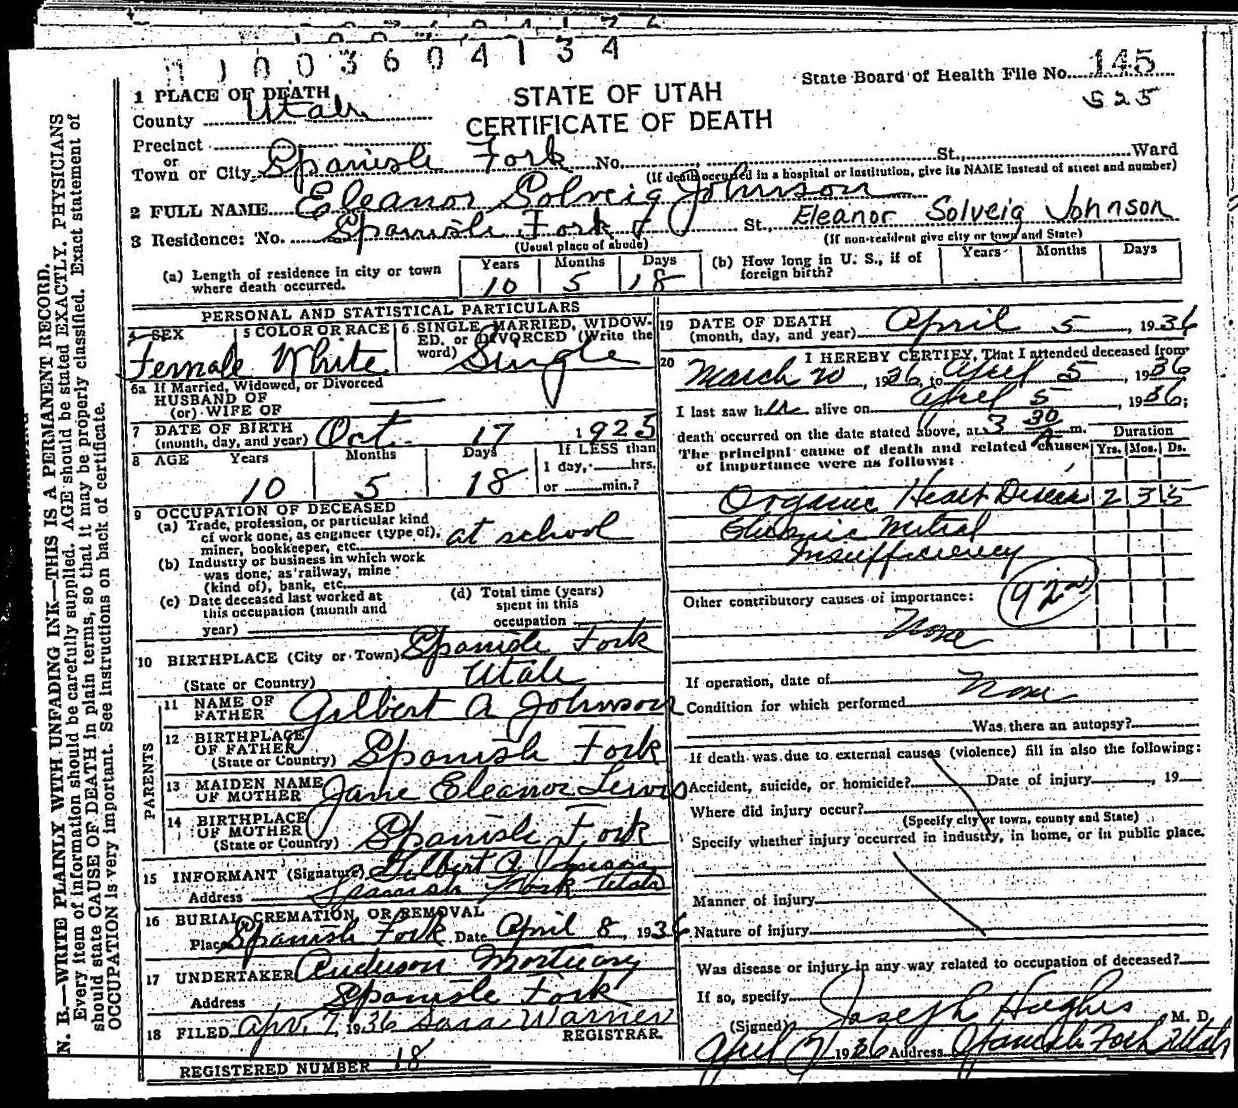 11003604134
State Board of Health File No. 145
525
STATE OF UTAH
CERTIFICATE OF DEATH
1 PLACE OF DEATH
County Utah
Precinct
or
Town or City Spanish Fork No. St., Ward
(If death occurred in a hospital or institution, give its NAME instead of street and number)
2 FULL NAME Eleanor Solveig Johnson
3 Residence: No. Spanish Fork St., Eleanor Solveig Johnson
(Usual place of abode) (If non-resident give city or town and State)
(a) Length of residence in city or town where death occurred. Years 10 Months 5 Days 18
(b) How long in U. S., if of foreign birth? Years Months Days
PERSONAL AND STATISTICAL PARTICULARS
4 SEX Female
5 COLOR OR RACE White
6 SINGLE, MARRIED, WIDOWED, or DIVORCED (Write the word) Single
6a If Married, Widowed, or Divorced
HUSBAND OF
(or) WIFE OF
7 DATE OF BIRTH
(month, day, and year) Oct. 17 1925
8 AGE Years 10 Months 5 Days 18 If LESS than
1 day, hrs.
or min.?
9 OCCUPATION OF DECEASED
(a) Trade, profession, or particular kind
of work done, as engineer (type of),
miner, bookkeeper, etc. at school
(b) Industry or business in which work
was done, as railway, mine
(kind of), bank, etc.
(c) Date deceased last worked at
this occupation (month and
year)
(d) Total time (years)
spent in this
occupation
10 BIRTHPLACE (City or Town) Spanish Fork
(State or Country) Utah
PARENTS
11 NAME OF
FATHER Gilbert A Johnson
12 BIRTHPLACE
OF FATHER
(State or Country) Spanish Fork
13 MAIDEN NAME
OF MOTHER Jane Eleanor Lewis
14 BIRTHPLACE
OF MOTHER
(State or Country) Spanish Fork
15 INFORMANT (Signature) Gilbert A Johnson
Address Spanish Fork Utah
16 BURIAL, CREMATION, OR REMOVAL
Place Spanish Fork Date April 8, 1936
17 UNDERTAKER Anderson Mortuary
Address Spanish Fork
18 FILED Apr. 7, 1936 Sara Warner
REGISTRAR.
REGISTERED NUMBER 18
19 DATE OF DEATH
(month, day, and year) April 5, 1936
20 I HEREBY CERTIFY, That I attended deceased from
March 20, 1936, to April 5, 1936
I last saw her alive on April 5, 1936;
death occurred on the date stated above, at 3 30 A m.
The principal cause of death and related causes
of importance were as follows:
Duration
Yrs. Mos. Ds.
Organic Heart Disease 2 3 5
Chronic Mitral
Insufficiency
Other contributory causes of importance:
None
If operation, date of None
Condition for which performed
Was there an autopsy?
If death was due to external causes (violence) fill in also the following:
Accident, suicide, or homicide? Date of injury , 19
Where did injury occur?
(Specify city or town, county and State)
Specify whether injury occurred in industry, in home, or in public place.
Manner of injury
Nature of injury
Was disease or injury in any way related to occupation of deceased?
If so, specify
(Signed) Joseph Hughes M. D.
April 7 1936 Address Spanish Fork Utah
N. B.—WRITE PLAINLY WITH UNFADING INK—THIS IS A PERMANENT RECORD.
Every item of information should be carefully supplied. AGE should be stated EXACTLY. PHYSICIANS
should state CAUSE OF DEATH in plain terms, so that it may be properly classified. Exact statement of
OCCUPATION is very important. See instructions on back of certificate.